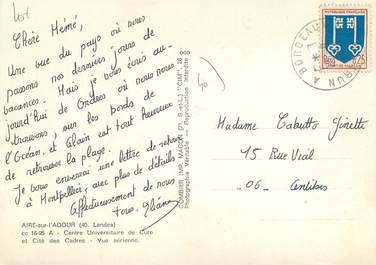 Lot
Chère Mémé,
Une vue du pays où nous
passons nos derniers jours de
vacances. Mais je vous écris au-
jourd'hui de Ondres où nous nous
trouvons, sur les bords de
l'Océan. et Alain est tout heureux
de retrouver la plage.
Je vous enverrai une lettre de retour
à Montpellier, avec plus de détails
Affectueusement de nous
tous. Eliane
AIRE-sur-l'ADOUR (40. Landes)
co 16-95 A - Centre Universitaire de Cure
et Cité des Cadres - Vue aérienne.
COMBIER IMP. MACON (71. S.-et-L.) "CIM"
Photographie Véritable - Reproduction Interdite
40
REPUBLIQUE FRANCAISE
0,25
BORDEAUX
Madame Cabutto Ginette
15 Rue Vial
_06_ Antibes